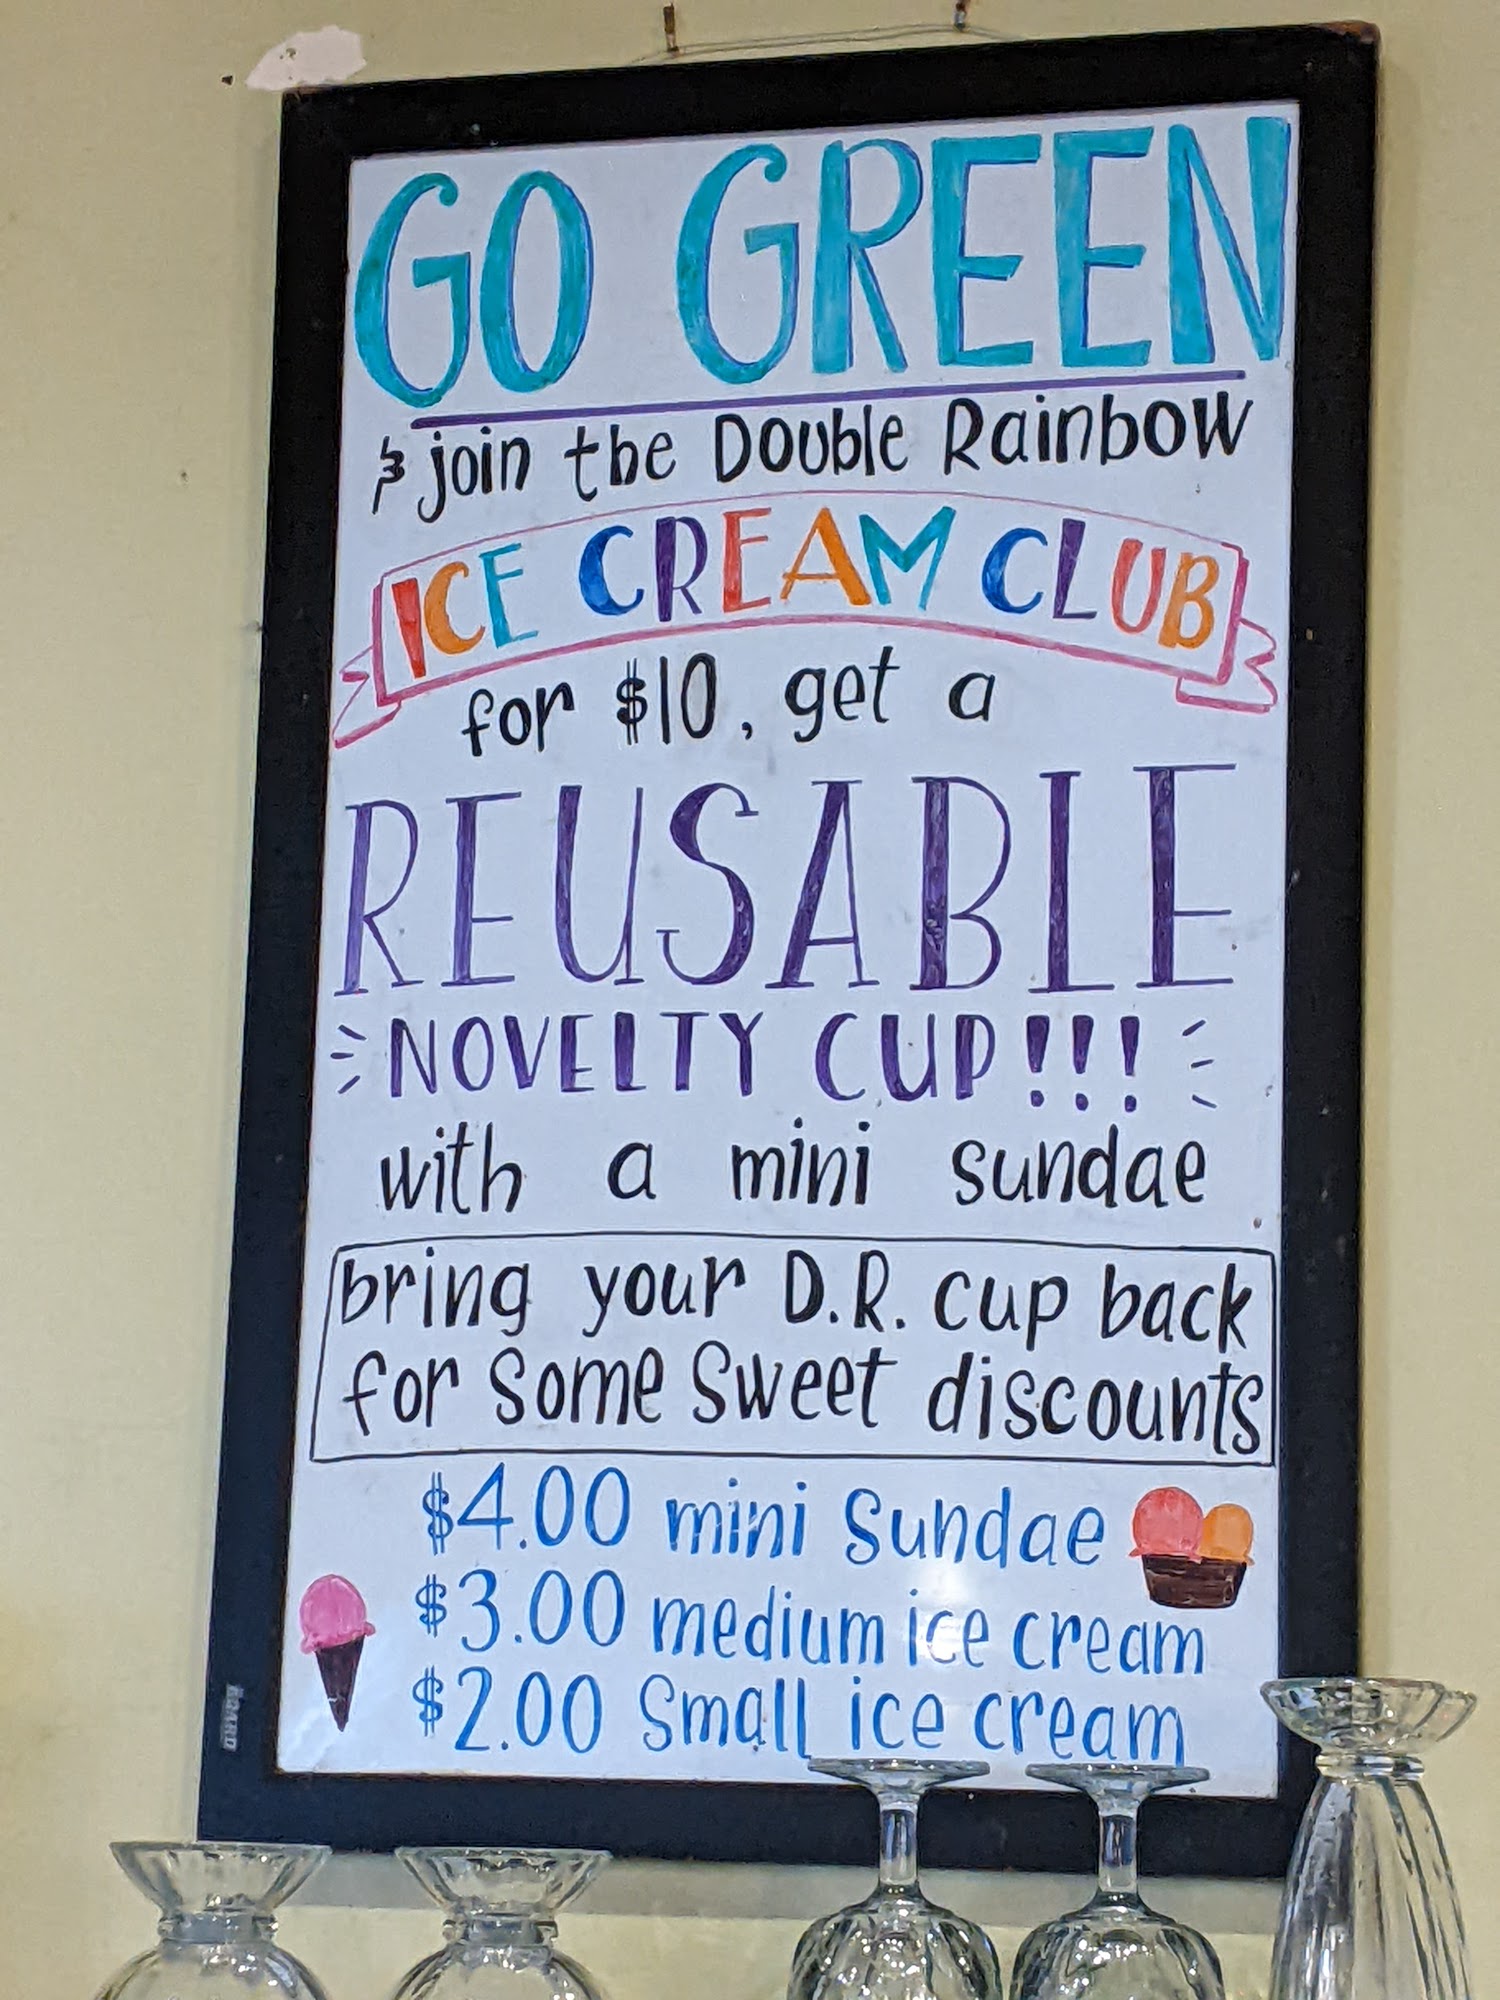 GO GREEN
& join the Double Rainbow
ICE CREAM CLUB
for $10, get a
REUSABLE
NOVELTY CUP!!!
with a mini sundae
bring your D.R. cup back
for some sweet discounts
$4.00 mini Sundae
$3.00 medium ice cream
$2.00 Small ice cream